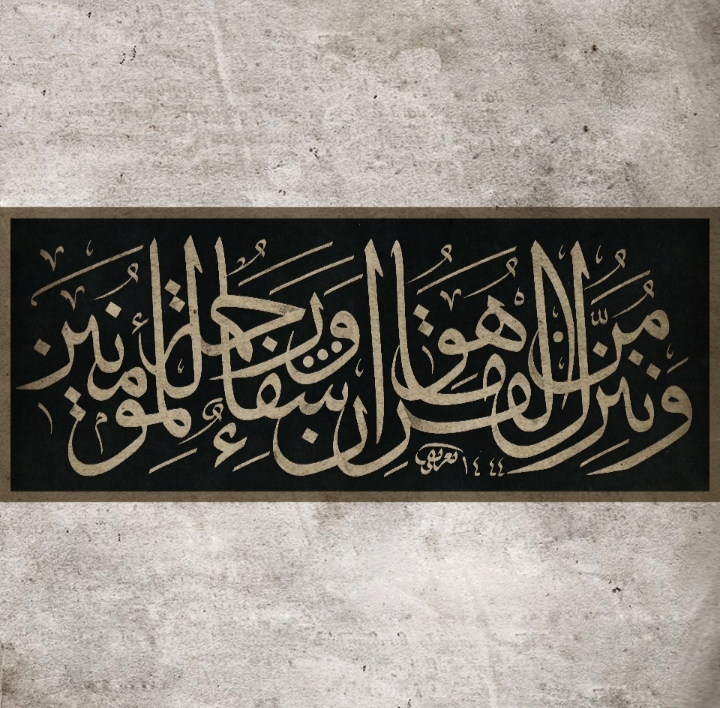 وَنُنَزِّلُ مِنَ الْقُرْآنِ مَا هُوَ شِفَاءٌ وَرَحْمَةٌ لِلْمُؤْمِنِينَ
١٤٤٤